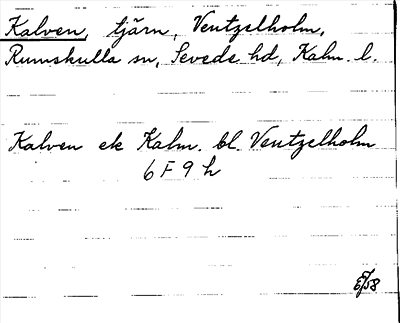 Kalven, tjärn, Ventzelholm,
Rumskulla sn, Sevede hd, Kalm. l.
Kalven ek Kalm. bl. Ventzelholm
6 F 9 h